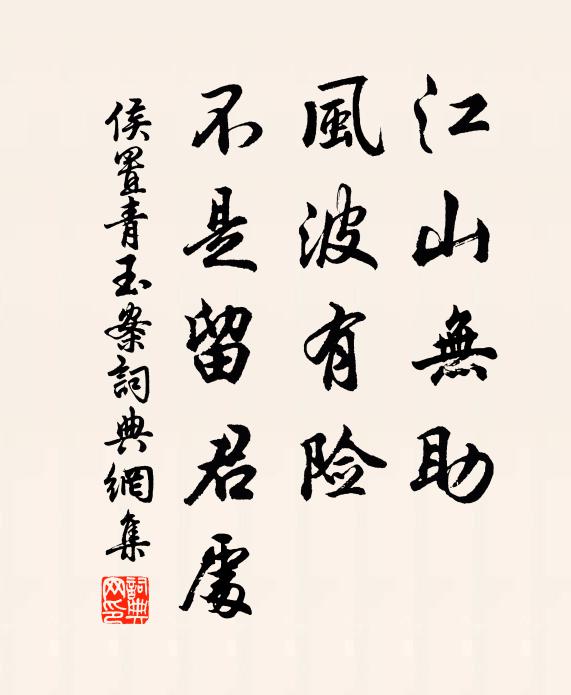 江山無助
風波有险
不是留君處
侯置青玉案詞典網集
詞典
网印